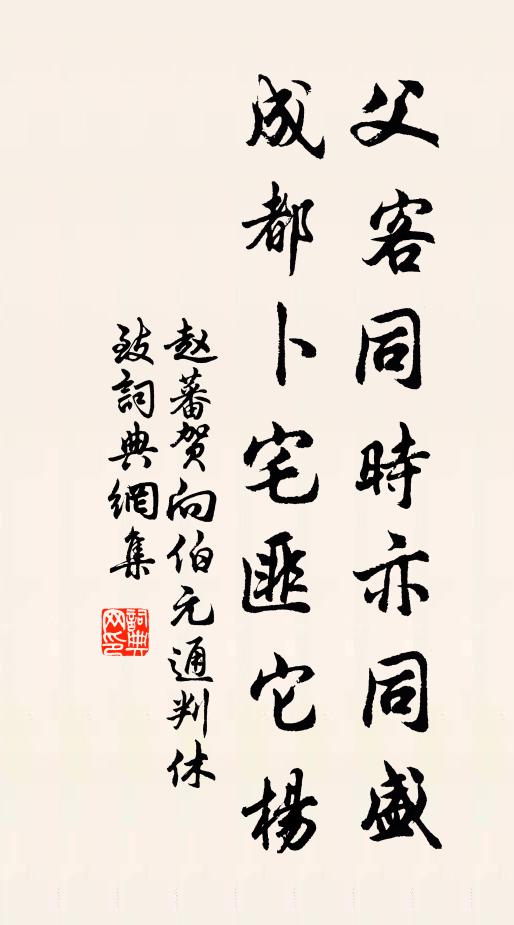 父客同時亦同盛
成都卜宅匪它楊
赵蕃贺向伯元通判休
致詞典網集
詞典
网印